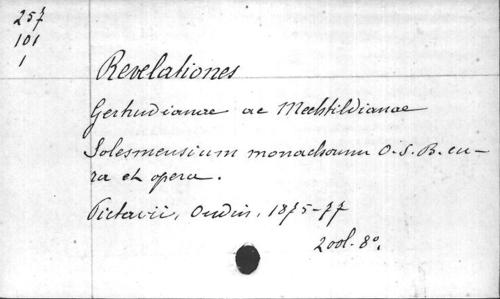 257
101
1
Revelationes
Gertrudianae ac Mechtildianae
Solesmensium monachorum O. S. B. cu-
ra et opera.
Pictavii, Oudin, 1875-77
2 vol. 8º.